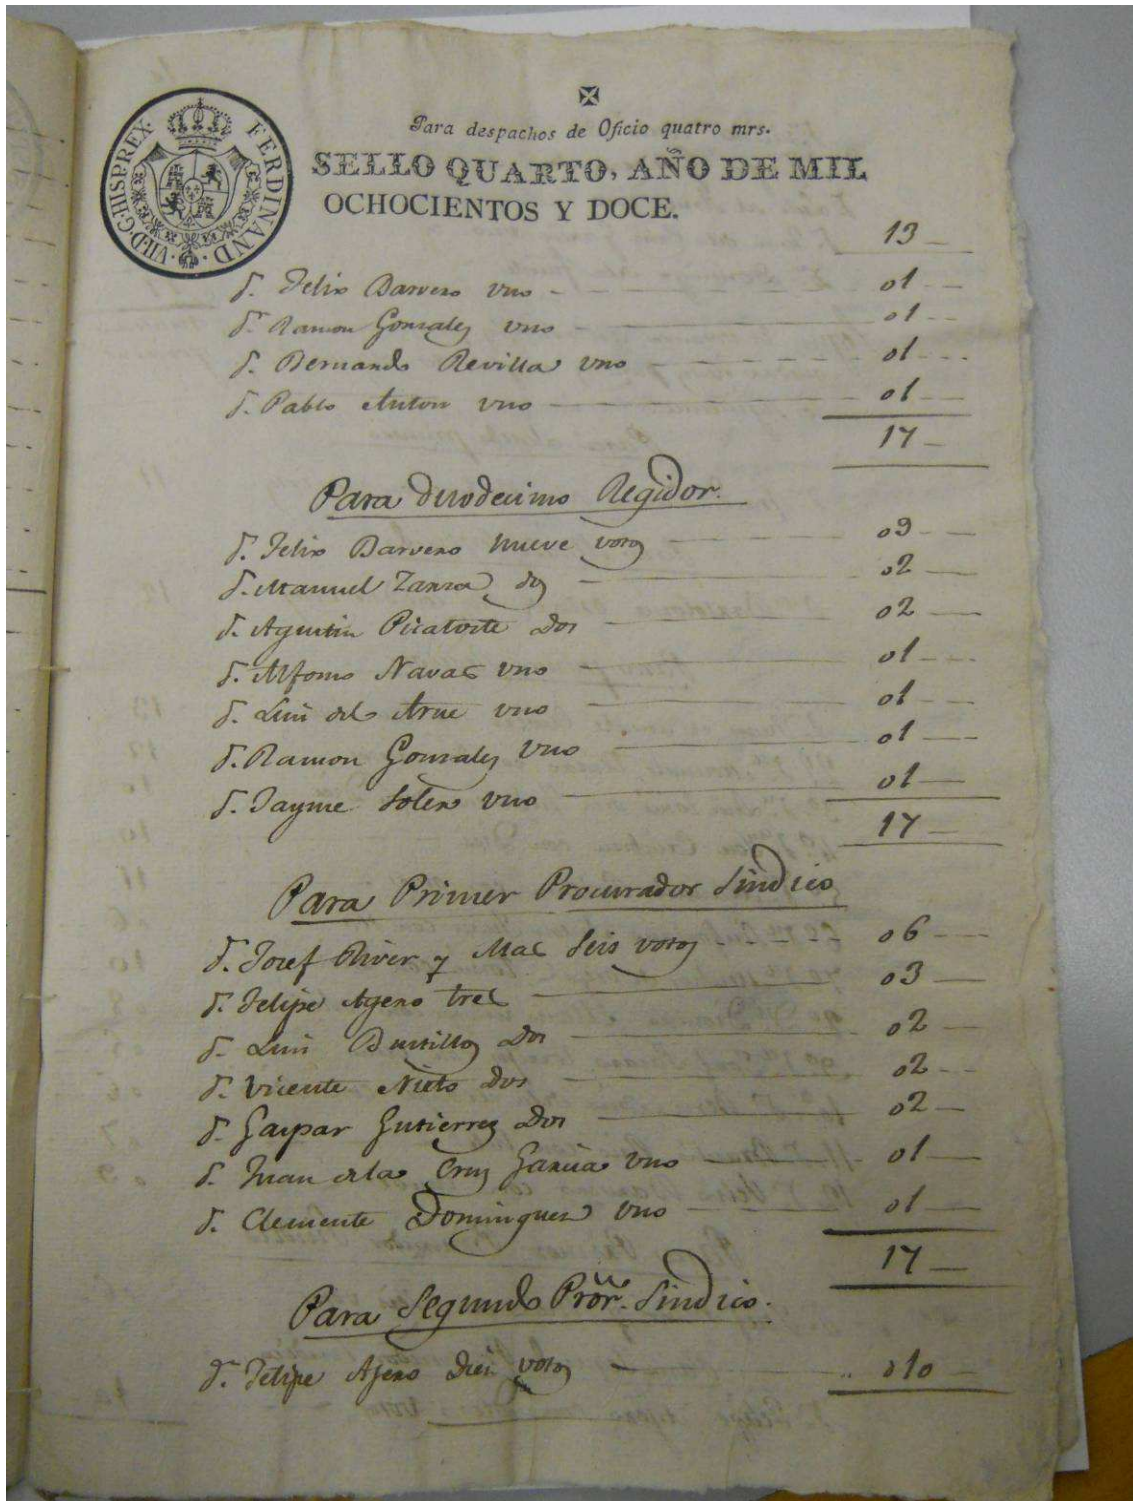 FERDINAND. VII. D. G. HISP. REX.
Para despachos de Oficio quatro mrs.
SELLO QUARTO, AÑO DE MIL
OCHOCIENTOS Y DOCE.
13
Dn. Felix Barvero vno 01
Dn. Ramon Gonzalez vno 01
Dn. Bernardo Revilla vno 01
Dn. Pablo Anton vno 01
17
Para duodecimo Regidor.
Dn. Felix Barvero nueve votos 09
Dn. Manuel Zanza dos 02
Dn. Agustin Picatoste dos 02
Dn. Alfonso Navas vno 01
Dn. Luis del vno 01
Dn. Ramon Gonzalez vno 01
Dn. Jayme Soler vno 01
17
Para Primer Procurador Sindico
Dn. Josef River y Mas Seis votos 06
Dn. Felipe Agero tres 03
Dn. Luis Bustillos dos 02
Dn. Vicente Nieto dos 02
Dn. Gaspar Gutierrez dos 02
Dn. Juan de la Cruz Garcia vno 01
Dn. Clemente Dominguez vno 01
17
Para Segundo Pror. Sindico.
Dn. Felipe Ajero Diez votos 010